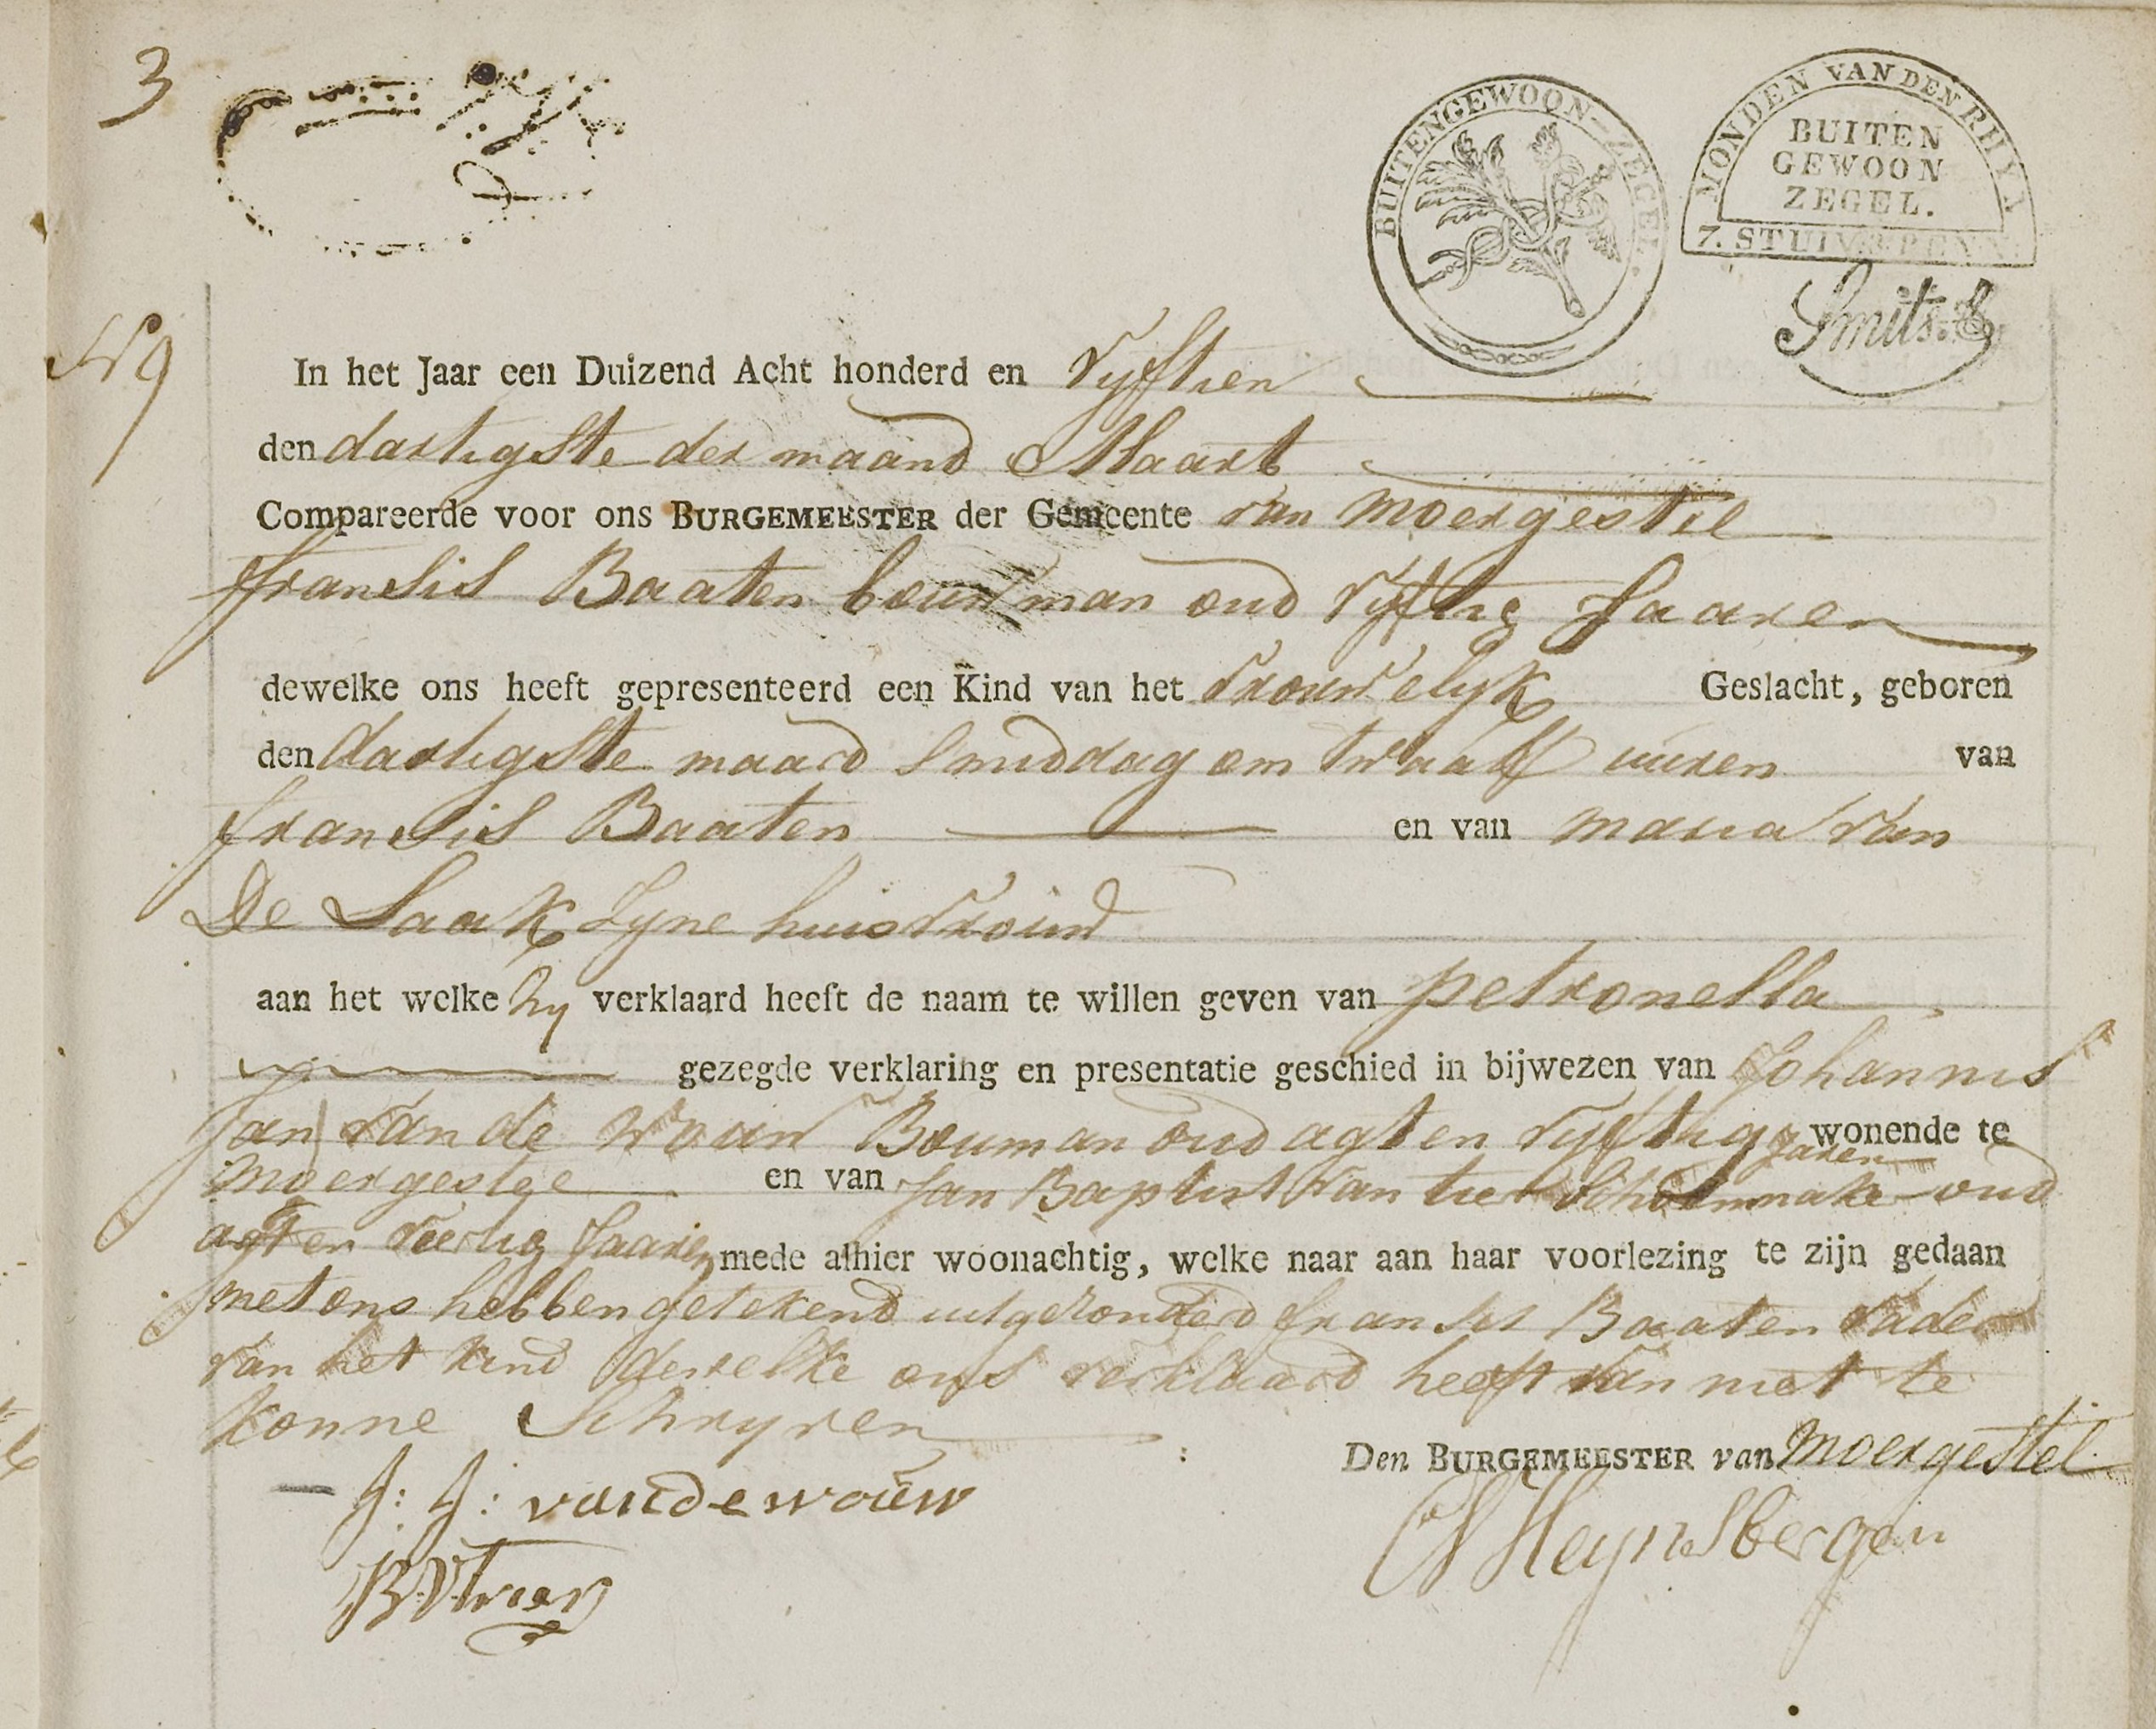 3
BUITENGEWOON-ZEGEL.
MONDEN VAN DEN RHYN
BUITEN
GEWOON
ZEGEL.
7. STUIV.
Smits.
N 9
In het Jaar een Duizend Acht honderd en vyftien
den dartigste der maand Maart
Compareerde voor ons BURGEMEESTER der Gemeente van moergestel
fransis Baaten bouwman oud vyftig Jaaren
dewelke ons heeft gepresenteerd een Kind van het vrouwelyk Geslacht, geboren
den dartigste maard smiddag om twaalf uuren van
fransis Baaten en van maria van
De Laak Zyne huisvrouw
aan het welke hy verklaard heeft de naam te willen geven van petronella
gezegde verklaring en presentatie geschied in bijwezen van Johannis
Jan van de wouw Bouman oud agt en vyftig Jaren wonende te
moergestge en van Jan Baptist van oud
agt en veertig Jaaren mede alhier woonachtig, welke naar aan haar voorlezing te zijn gedaan
met ons hebben getekend uitgezonderd fransis Baaten vader
van het kind dewelke ons verklaard heeft van niet te
konne Schryven
Den BURGEMEESTER van moergestel
J: J: vandewouw